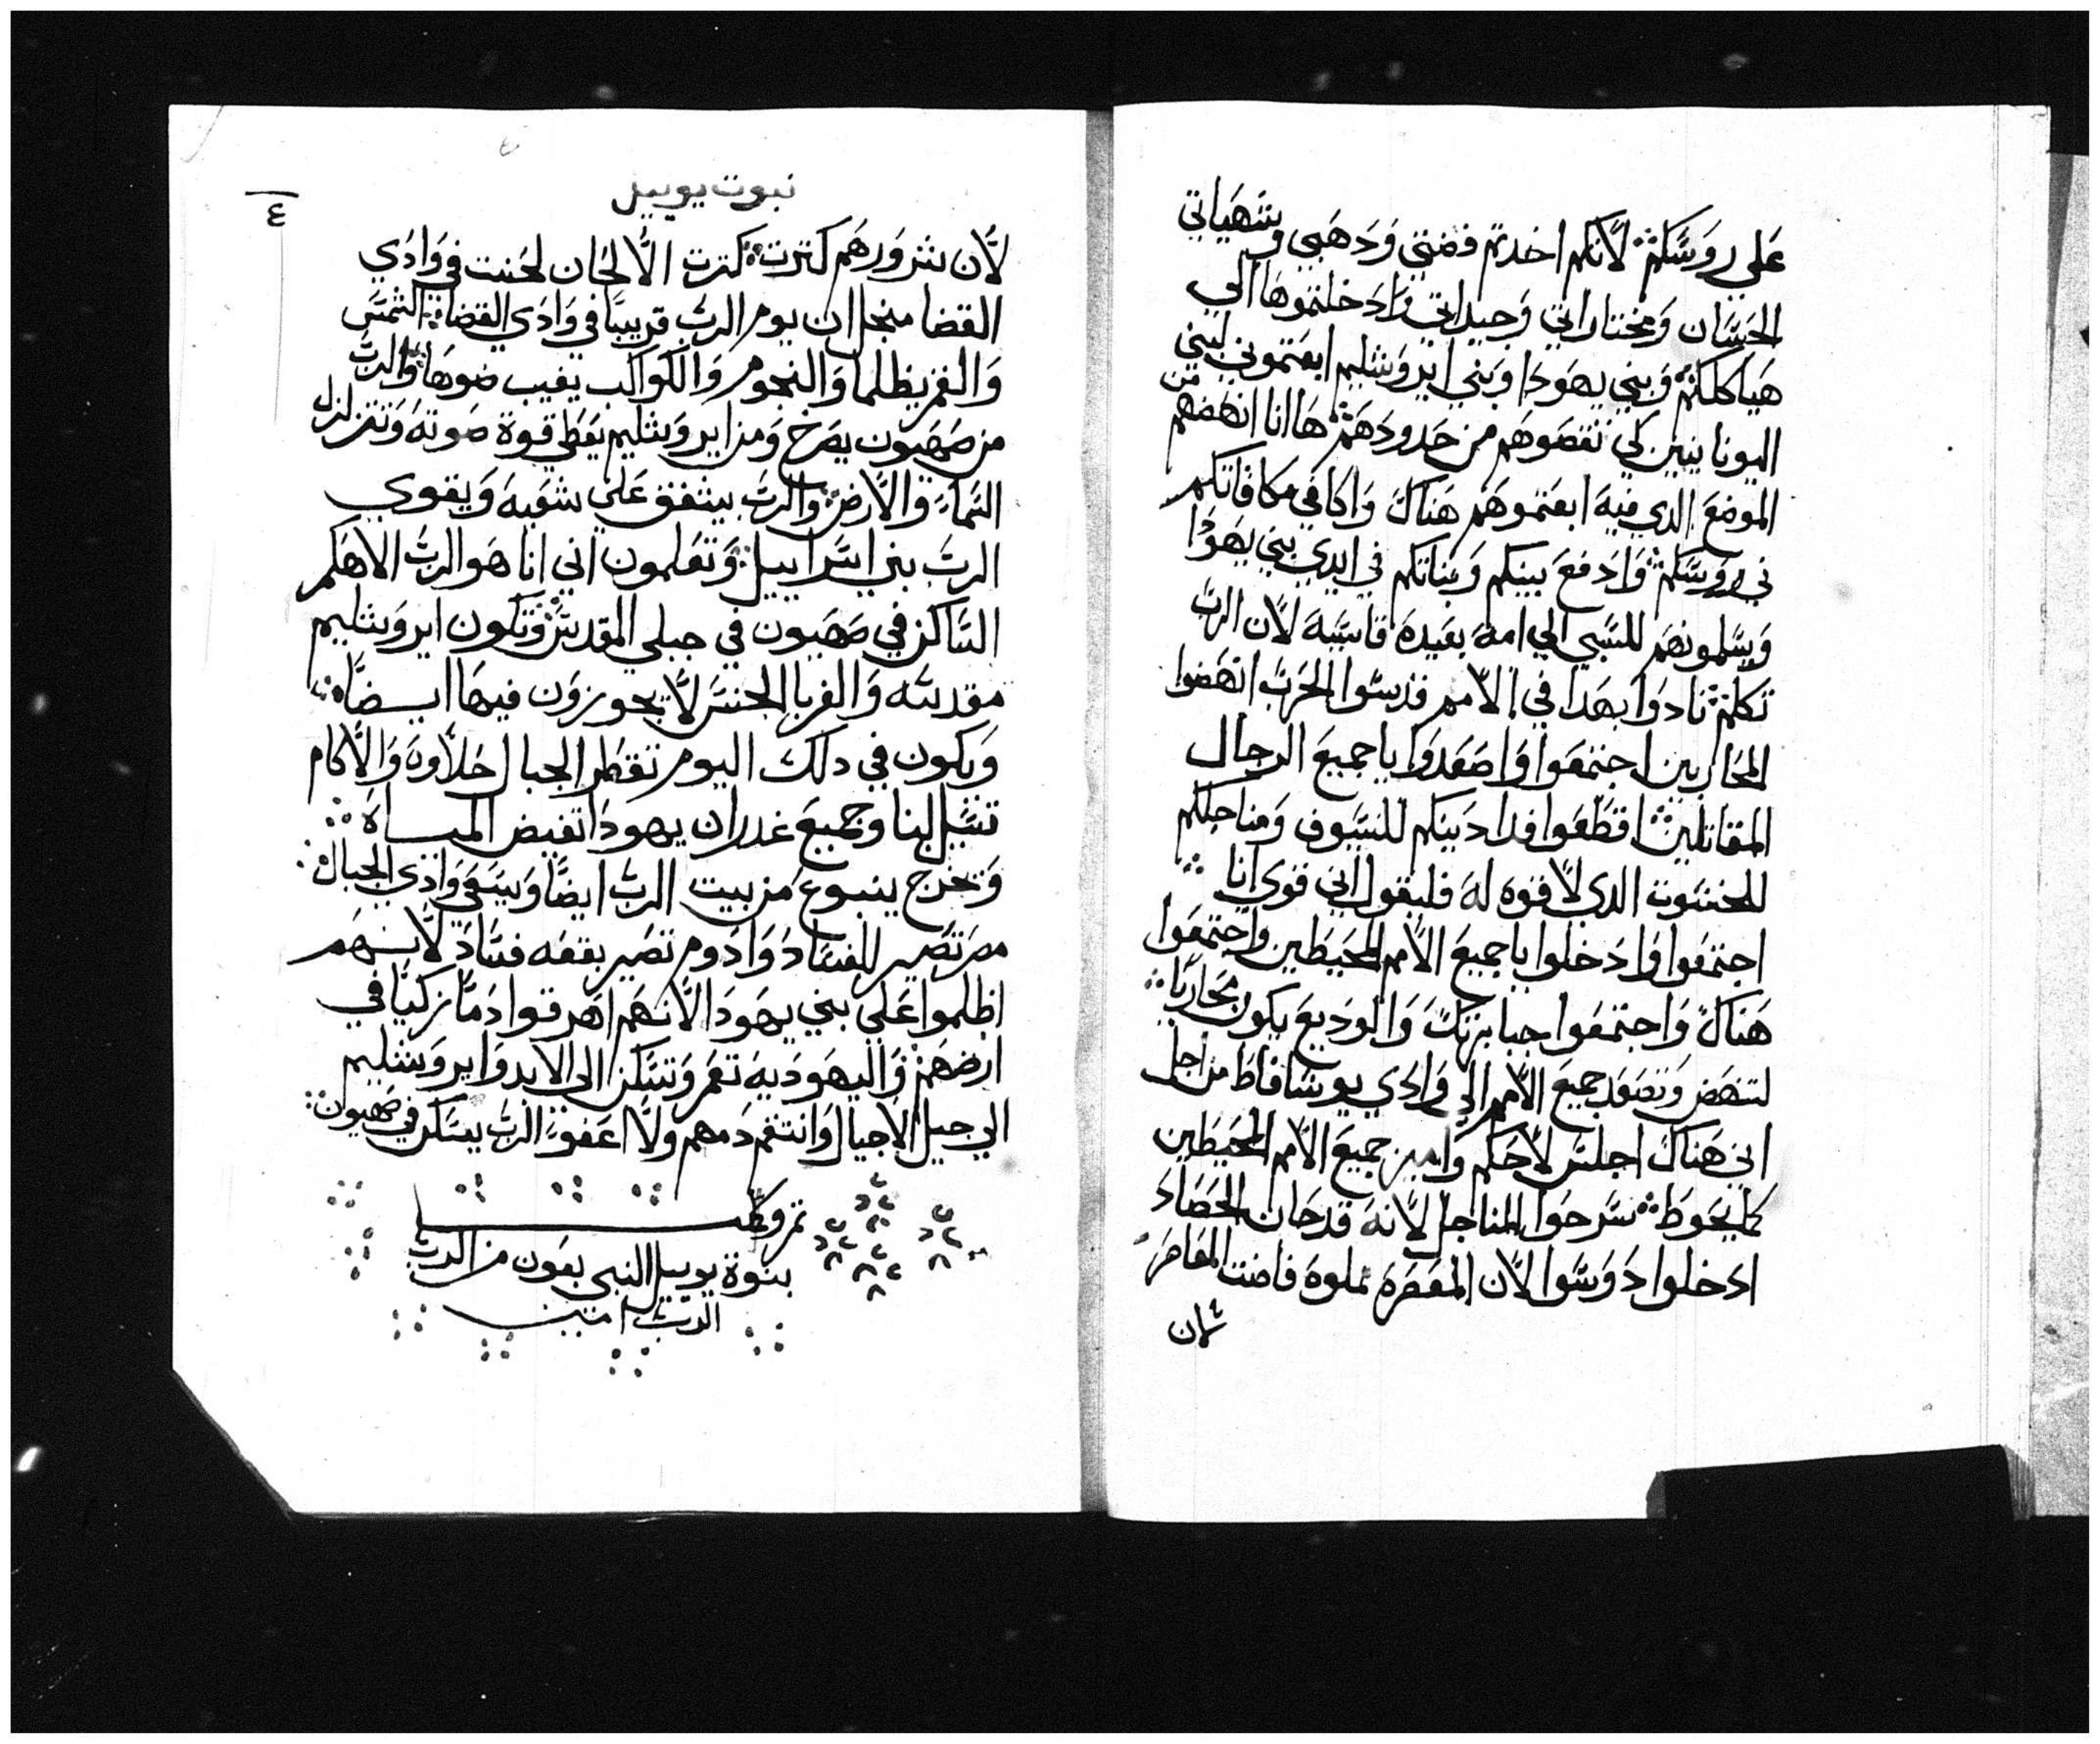 عَلي روَسَّكم܀ لاَّنكم اخدتم فضتي وَدهَبي وشهَياتي
الحَسَّان وَمختاراتي وَجيداتي وَادخلتموهَا الي
هَياكلكم܀ وَبني يهَودا وبني ايروَشليم ابعَتموني لبني
اليونانيين لكي تقصَوهَم من حَدودهَم܀ هَا انا انهَضهم من
الموضعَ الدي فيهَ ابعَتموهَم هَناك وَاكافي مكافاتكم
في روَسَّكم܀ وَادفعَ بنيكم وَبناتكم في ايدي بني يهَودا
وَيسَّلمونهَم للسَّبي الي امهَ بعَيدهَ قاسَّيهَ لاَّن الربَّ
تكلم܀ نادوَا بهَدا في الاَّمم قدسَّوا الحَربَّ انهَضوا
المحَاربين اجتمعَوا وَاصعَدوَا يا جميعَ الرجال
المقاتلين܀ اقطَعَوا فدادينكم للسَّيوف وَمناجلكم
للحنشوت الدي لاَّ قوه لهَ فليقول اني قوي انا܀
اجتمعَوا وَادخلوا يا جميعَ الاَّمم المحَيطَين وَاجتمعَوا
هَناك وَاجتمعَوا جبابرتك وَالوديعَ يكون محَاربًا܀
لتنهَض وَتصَعَد جميعَ الاَّمم الي وَادي يوسَّافاطَ من اجل
اني هَناك اجلسَّ لاَّحَكم وَاميز جميعَ الاَّمم المحَيطَين
كما يحَوطَ܀ سَّرحَوا المناجل لاَّنهَ قد حَان الحَصَادَ
ادخلوا دوَسَّوا لاَّن المعَصَرهَ مملوهَ فاضت المعَاصَر
لاَن
نبوت يوييل
٤
لاَّن شروَرهَم كترت܀ كترت الاَّلحَان لحَنت في وَادي
القضا منجل ان يوم الربَّ قريبًا في وَادي القضا܀ الشمسَّ
وَالقمر يظلما وَالنجوم وَالكواكب يغيب ضوهَا܀ وَالربَّ
من صَهَيون يصَرخ وَمن ايروَشليم يعَطَي قوة صَوتهَ وَتتزلزل
السَّمآء وَالاَّرض܀ وَالربَّ يشفق عَلي شعَبهَ وَيقوي
الربَّ بني اسَّراييل܀ وَتعَلمون اني انا هَو الربَّ الاهَكم
السَّاكن في صَهَيون في جبلي المقدسَّ܀ وَتكون ايروَشليم
مقدسَّه وَالغربا الجنسَّ لاَّ يجوزوَن فيهَا ايــضًا܀
وَيكون في دلك اليوم تقطَر الجبال حَلاَّوة وَالاَّكام
تسَّيل لبنا وَجميعَ غدران يهَودا تفيض الميــاة܀
وَتخرج ينبوعَ من بيت الربَّ ايضًا وَيسَّقي وَادي الجبال܀
مصَر تصَير للفسَّاد وَادوَم تصَير بقعَه فسَّاد لاَّنــهَم
اظلموا عَلي بني يهَودا لاَّنهَم اهَرقوا دمًا زكيًا في
ارضهَم܀ وَاليهَوديهَ تعَمر وَتسَّكن الي الابد وَايروَشليم
الي جيل الاَّجيال وَانتقم دمهم وَلاَّ اعَفو܀ الربَّ يسَّكن في صَهَيون܀
تم وكلــت
بنوة يوييل النبي بعَون من الربَّ
الربَّ امــين